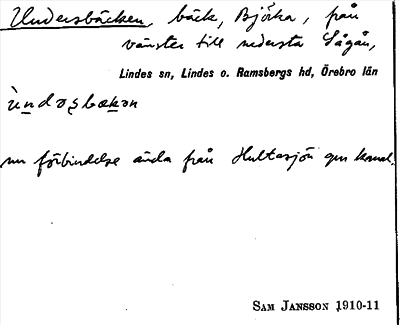 Undersbäcken, bäck, Björka, från
vänster till nedersta Sågån,
Lindes sn, Lindes o. Ramsbergs hd, Örebro län
ùndəṣbœkən
nu förbindelse ända från Hultasjön gm kanal.
SAM JANSSON 1910-11